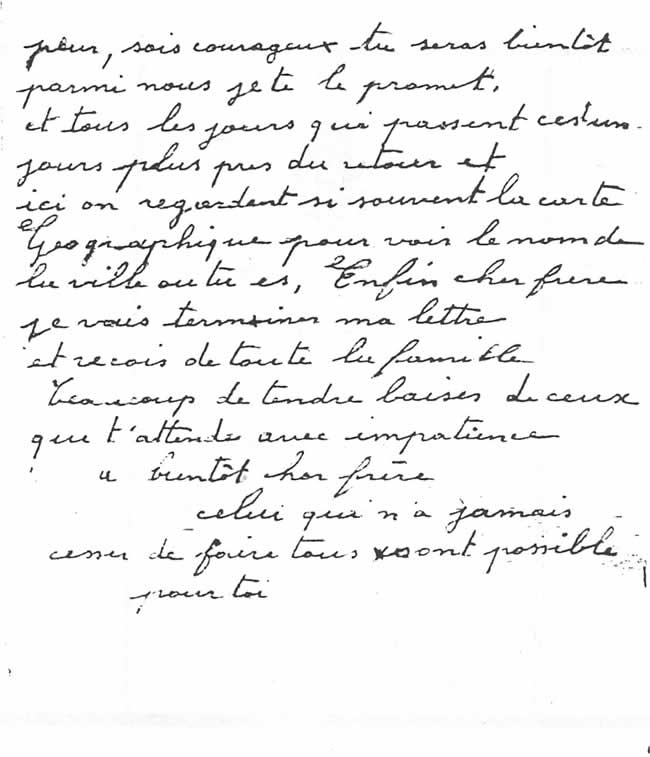 peur, sois courageux tu seras bientôt
parmi nous je te le promet.
et tous les jours qui passent c'est un
jours plus pres du retour et
ici on regardent si souvent la carte
Geographique pour voir le nom de
la ville ou tu es, Enfin cher frere
je vais terminer ma lettre
et recois de toute la famille
beaucoup de tendre baises de ceux
que t'attende avec impatience
a bientôt cher frère
celui qui n'a jamais
cesser de faire tous sont possible
pour toi